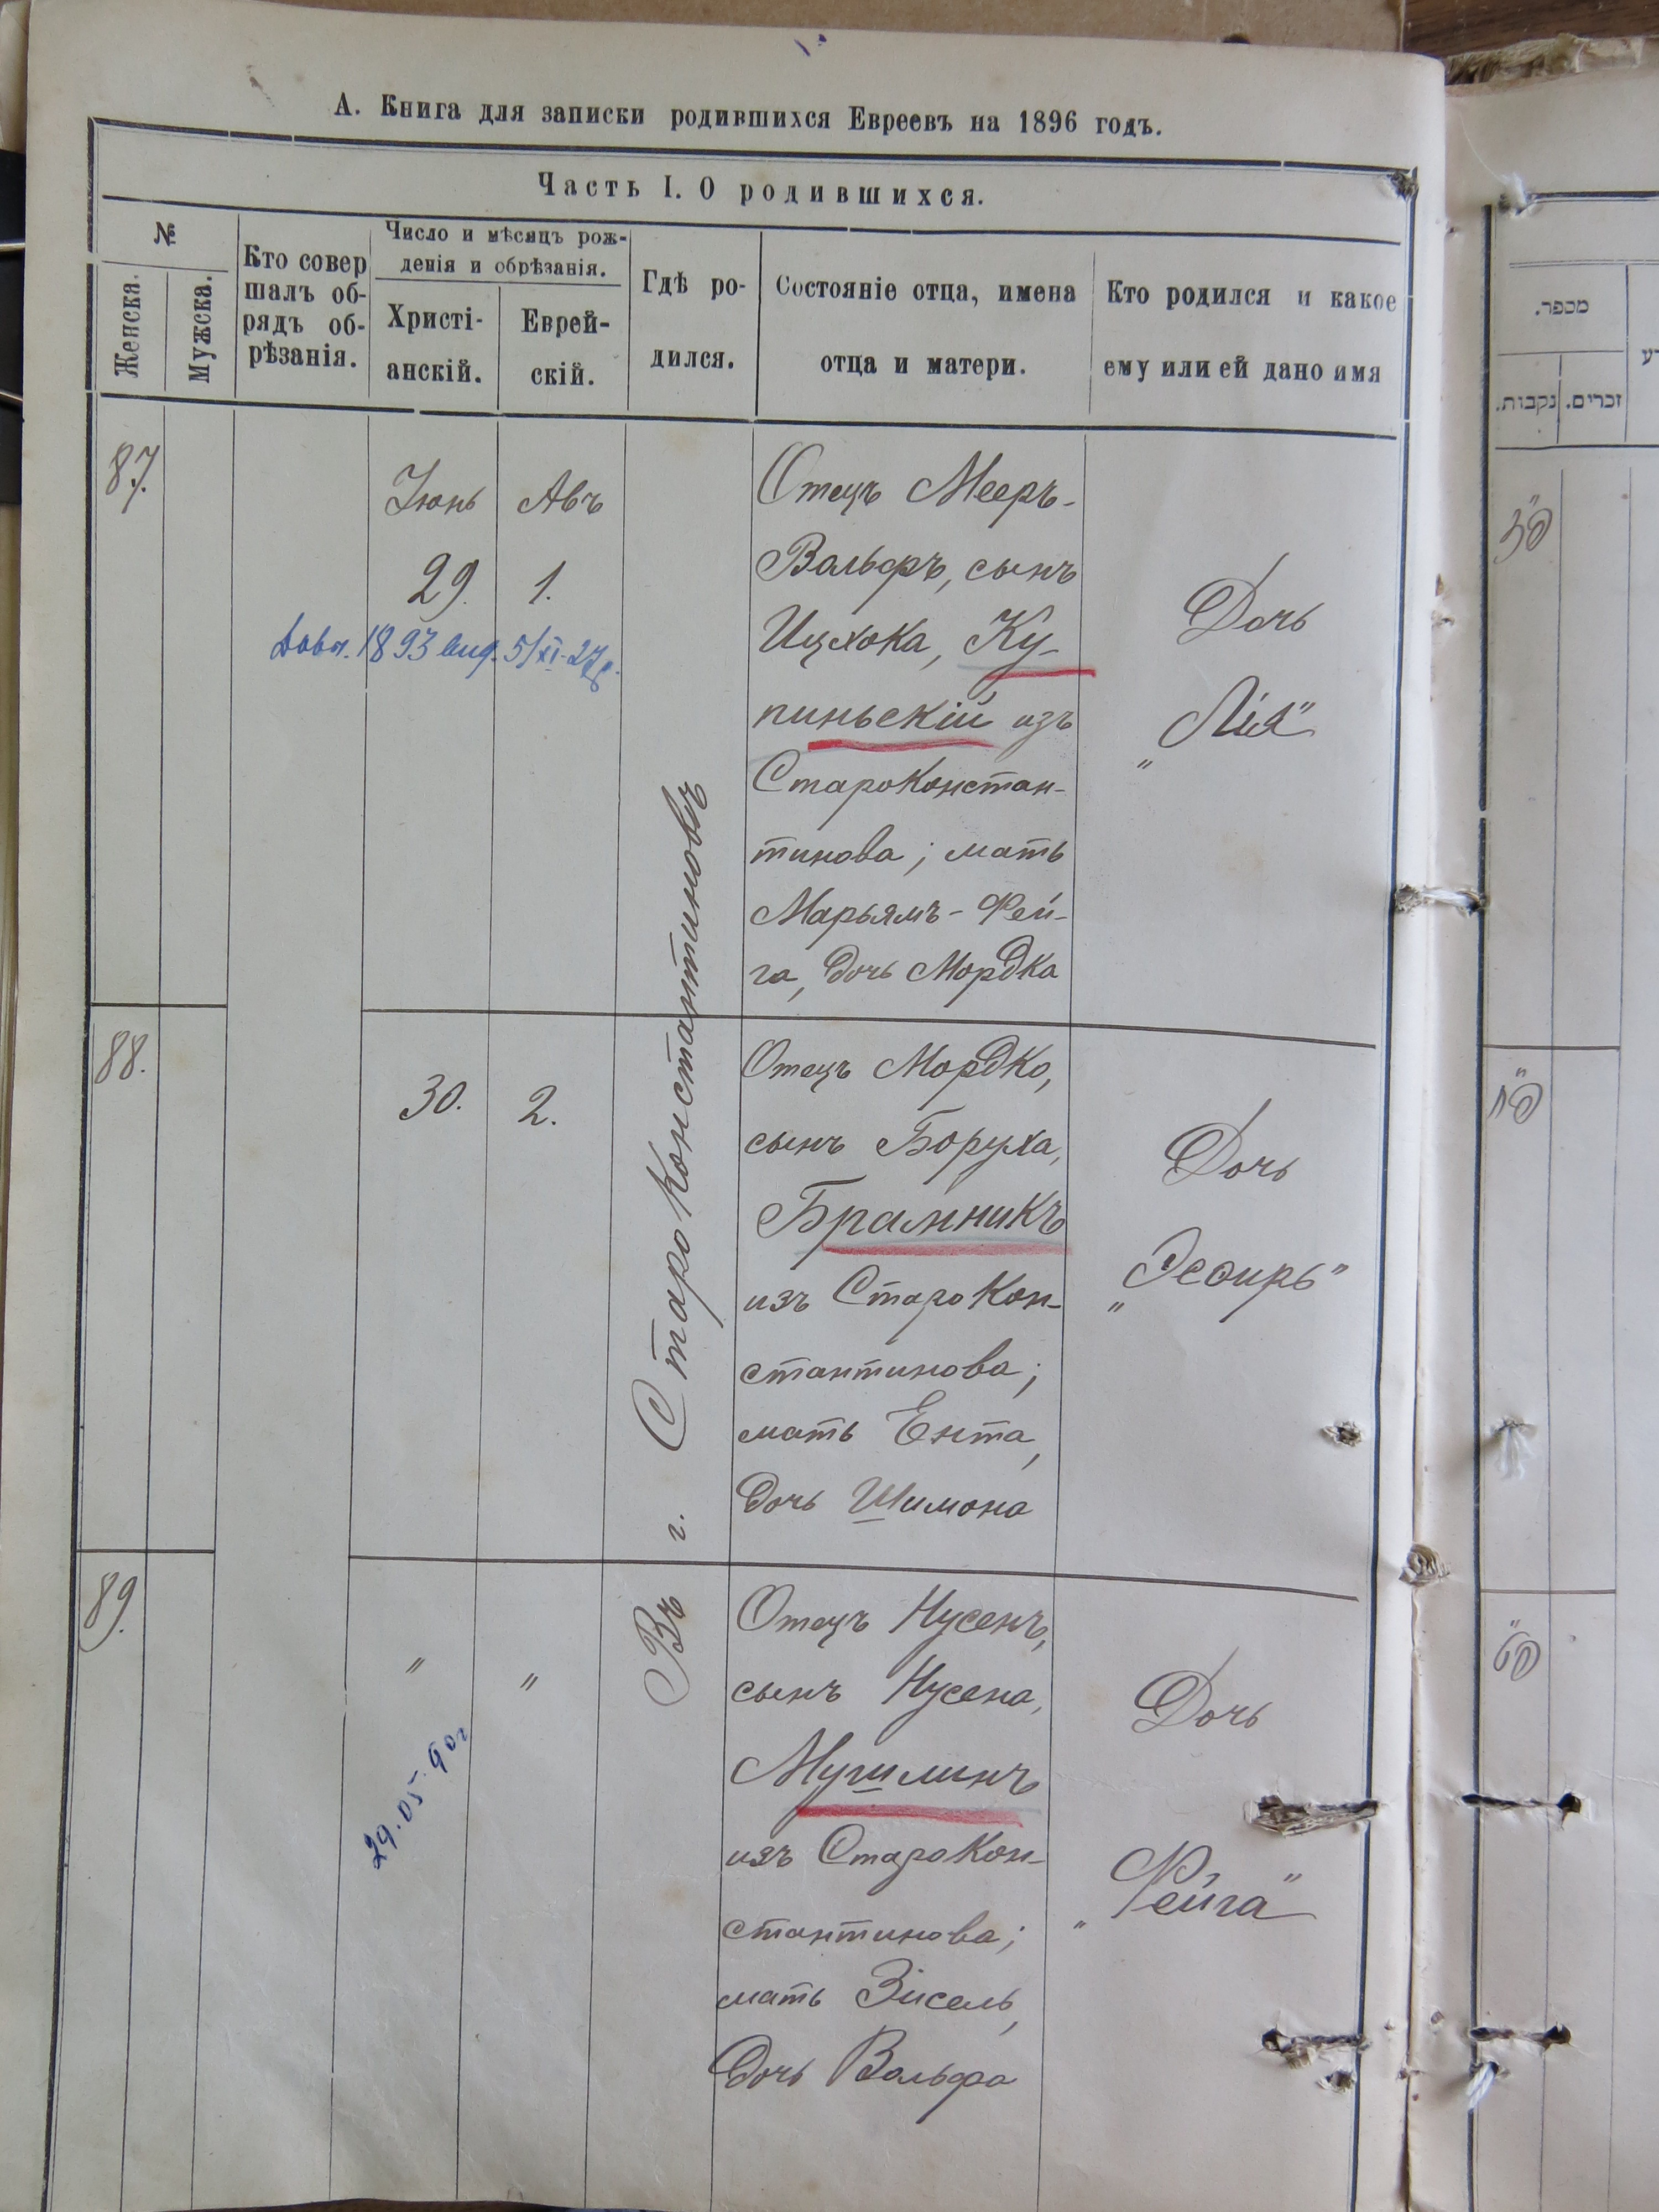 А. Книга для записки родившихся Евреевъ на 1896 годъ.
Часть I. О родившихся.
№
Женска.
Мужска.
Кто совер
шалъ об-
рядъ об-
рѣзанія.
Число и мѣсяцъ рож-
денія и обрѣзанія.
Христі-
анскій.
Еврей-
скій.
Гдѣ ро-
дился.
Состояніе отца, имена
отца и матери.
Кто родился и какое
ему или ей дано имя
87.
Іюнь
29.
Авъ
1.
1893 5/XI-27
Въ г. Староконстантиновъ
Отецъ Мееръ-
Вольфъ, сынъ
Ицхока, Ку-
пиньскій изъ
Староконстан-
тинова; мать
Марьямъ-Фей-
га, дочь Мордка
Дочь
"Лія"
88.
30.
2.
Отецъ Мордко,
сынъ Боруха,
Брамникъ
изъ Старокон-
стантинова;
мать Ента,
дочь Шимона
Дочь
"Эсѳирь"
89.
"
"
29.05.90г
Отецъ Нусенъ,
сынъ Нусена,
Мушлинъ
изъ Старокон-
стантинова;
мать Зисель,
дочь Вольфа
Дочь
"Фейга"
מספר.
נקבות.
זכרים.
פ"ז
פ"ח
פ"ט